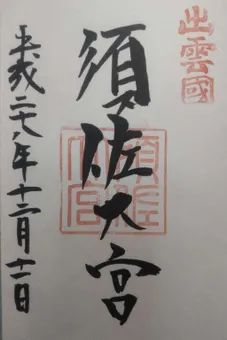 出雲國
須佐大宮
須佐
大宮
平成二十八年十二月十一日